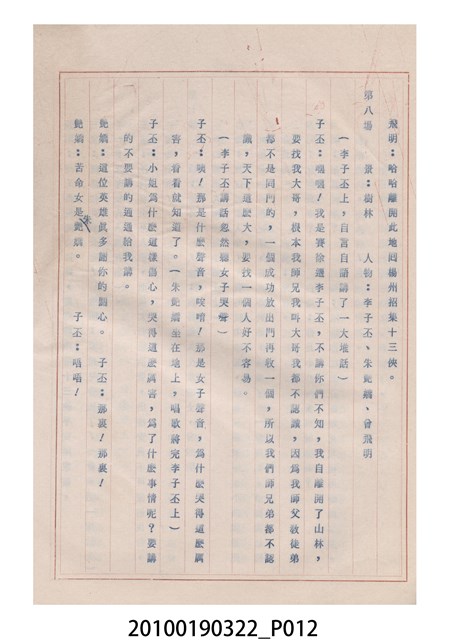 飛明：哈哈離開此地回楊州招集十三俠。
第八場　景：樹林　人物：李子丕、朱艷嬌、曾飛明
（李子丕上，自言自語講了一大堆話）
子丕：嗯嗯！我是賽徐遜李子丕，不講你們不知，我自離開了山林，
要找我大哥，根本我師兄我叫大哥我都不認識，因為我師父教徒弟
都不是同門的，一個成功放出門再收一個，所以我們師兄弟都不認
識，天下這麼大，要找一個人好不容易。
（李子丕講話忽然聽女子哭聲）
子丕：咦！那是什麼聲音，唉唷！那是女子聲音，為什麼哭得這麼厲
害，看看就知道了。（朱艷嬌坐在地上，唱歌將完李子丕上）
子丕：小姐為什麼這樣傷心，哭得這麼厲害，為了什麼事情呢？要講
的不要講的通通給我講。
艷嬌：這位英雄真多謝你的關心。　子丕：那裏！那裏！
艷嬌：苦命女是朱艷嬌。　子丕：唱唱！
20100190322_P012